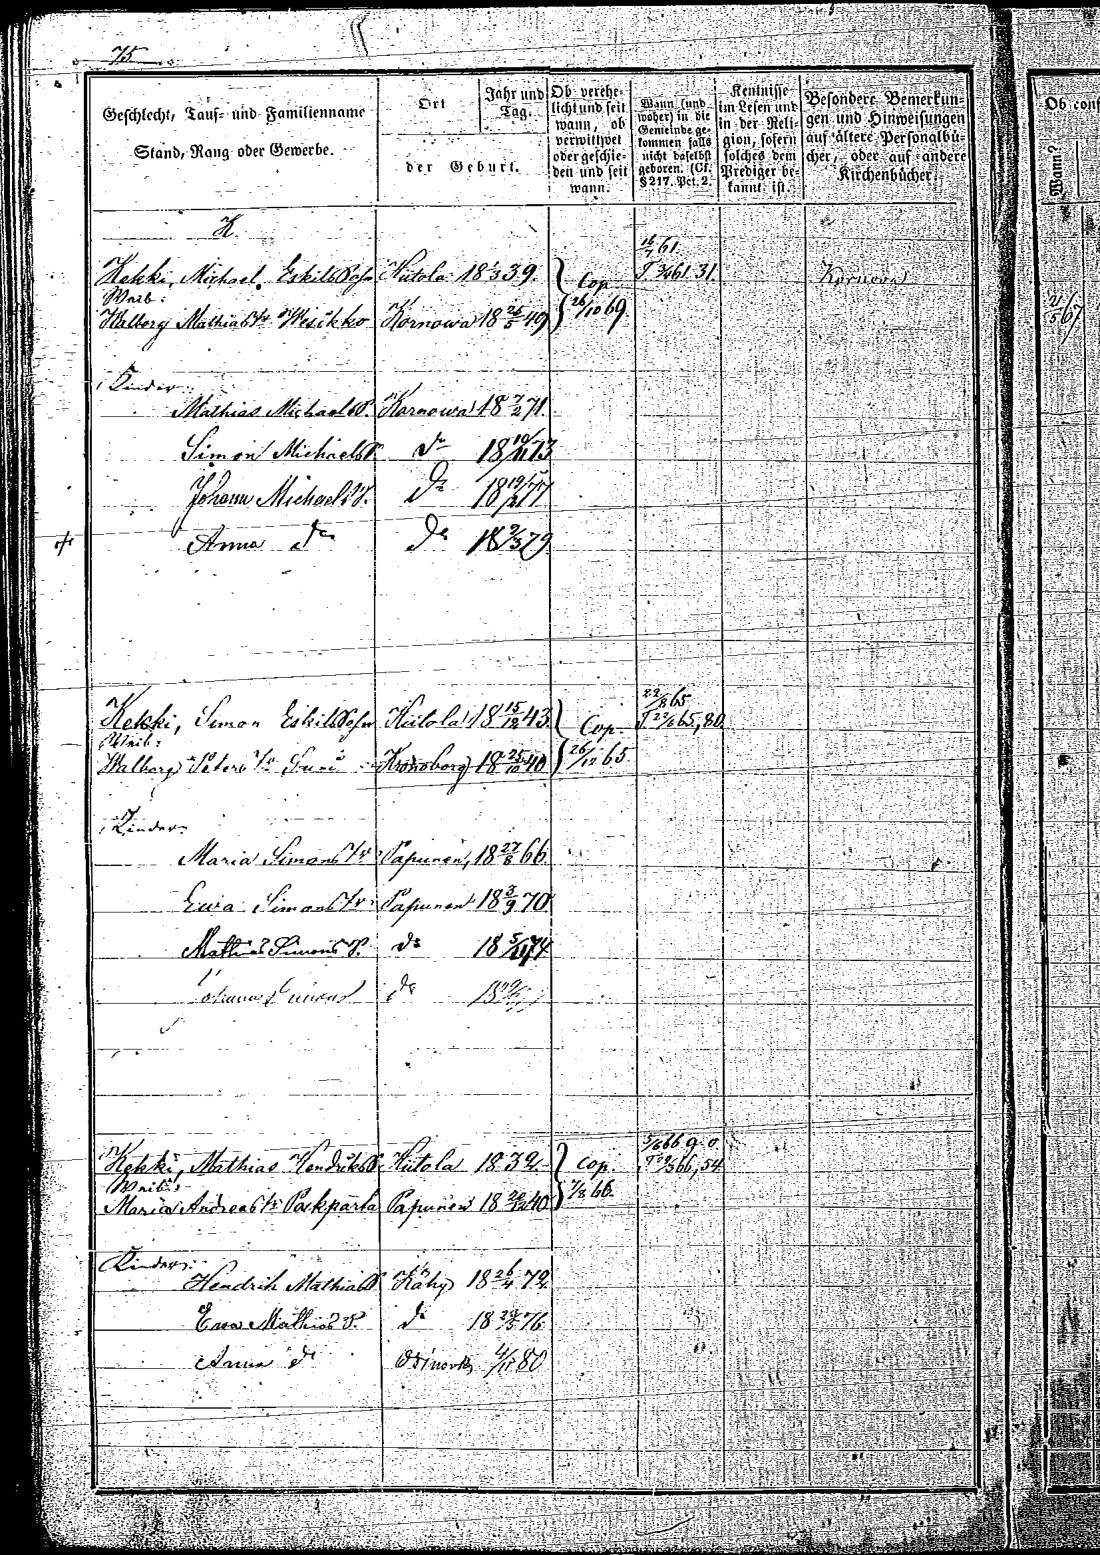 75
Geschlecht, Tauf- und Familienname
Stand, Rang oder Gewerbe.
Ort
der Geburt.
Jahr und
Tag.
Ob verehe-
licht und seit
wann, ob
verwittwet
oder geschie-
den und seit
wann.
Wann (und
woher) in die
Gemeinde ge-
kommen falls
nicht daselbst
geboren. (Cf.
§ 217. Pct. 2.
Kentnisse
im Lesen und
in der Reli-
gion, sofern
solches dem
Prediger be-
kannt ist.
Besondere Bemerkun-
gen und Hinweisungen
auf ältere Personalbü-
cher, oder auf andere
Kirchenbücher.
Ob conf
Wann?
K
16/7 61
Kekki, Michael Eskils Sohn Hiitola 18 1/3 39. Cop. 61.31. Kornowa
Weib:
Walborg Mathias Wesikko Kornowa 18 49 26/10 69. 21/5 67
Kinder
Mathias Michaels S. Kornowa 18 7/2 71.
Simon Michaels S. do 18 73
Johann Michaels S. do 18 77
Anna do do 18 2/3 79
22/8 65
Kekki, Simon Eskils Sohn Hiitola 18 15/12 43. Cop. 65, 80.
Weib:
Walborg Peters Kronoborg 18 25/10 40 26/12 65.
Kinder
Maria Simons Papunen, 18 27/8 66.
Ewa Simons Papunen 18 3/9 70.
Mathias Simons S. do 18 74
Johann Simons do 18
66
Kekki, Mathias Hendriks S. Hiitola 1832 Cop. 66, 54.
Weib:
Maria Andreas Paskparta Papunen 18 40 7/8 66.
Kinder:
Hendrik Mathias S. Kahy 18 26/4 72.
Ewa Mathias do 18 76
Anna do 4/11 80